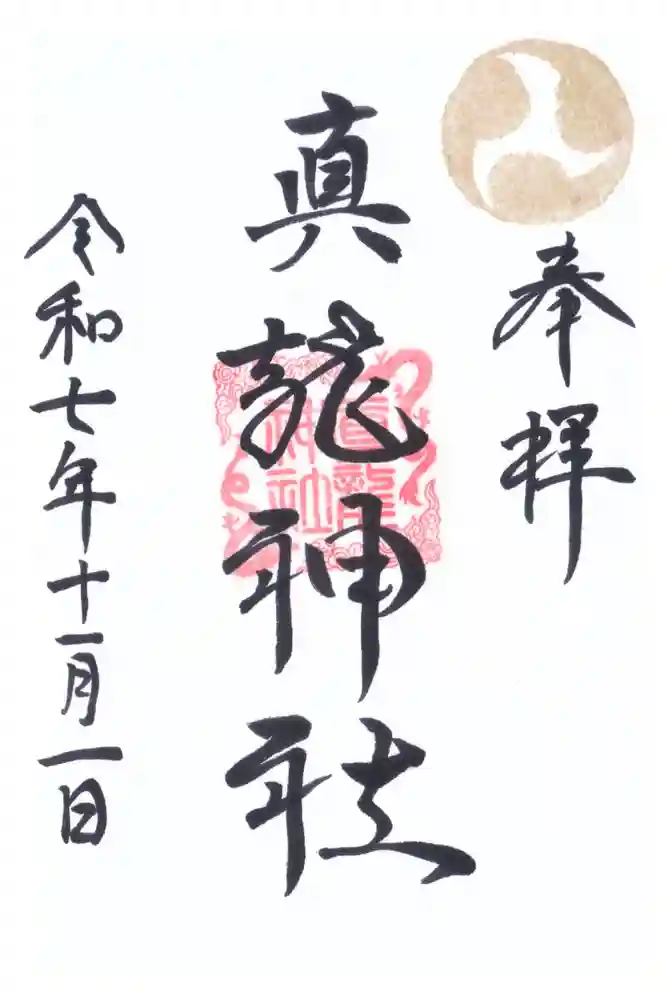 奉拝
真龍神社
真龍
神社
令和七年十一月一日